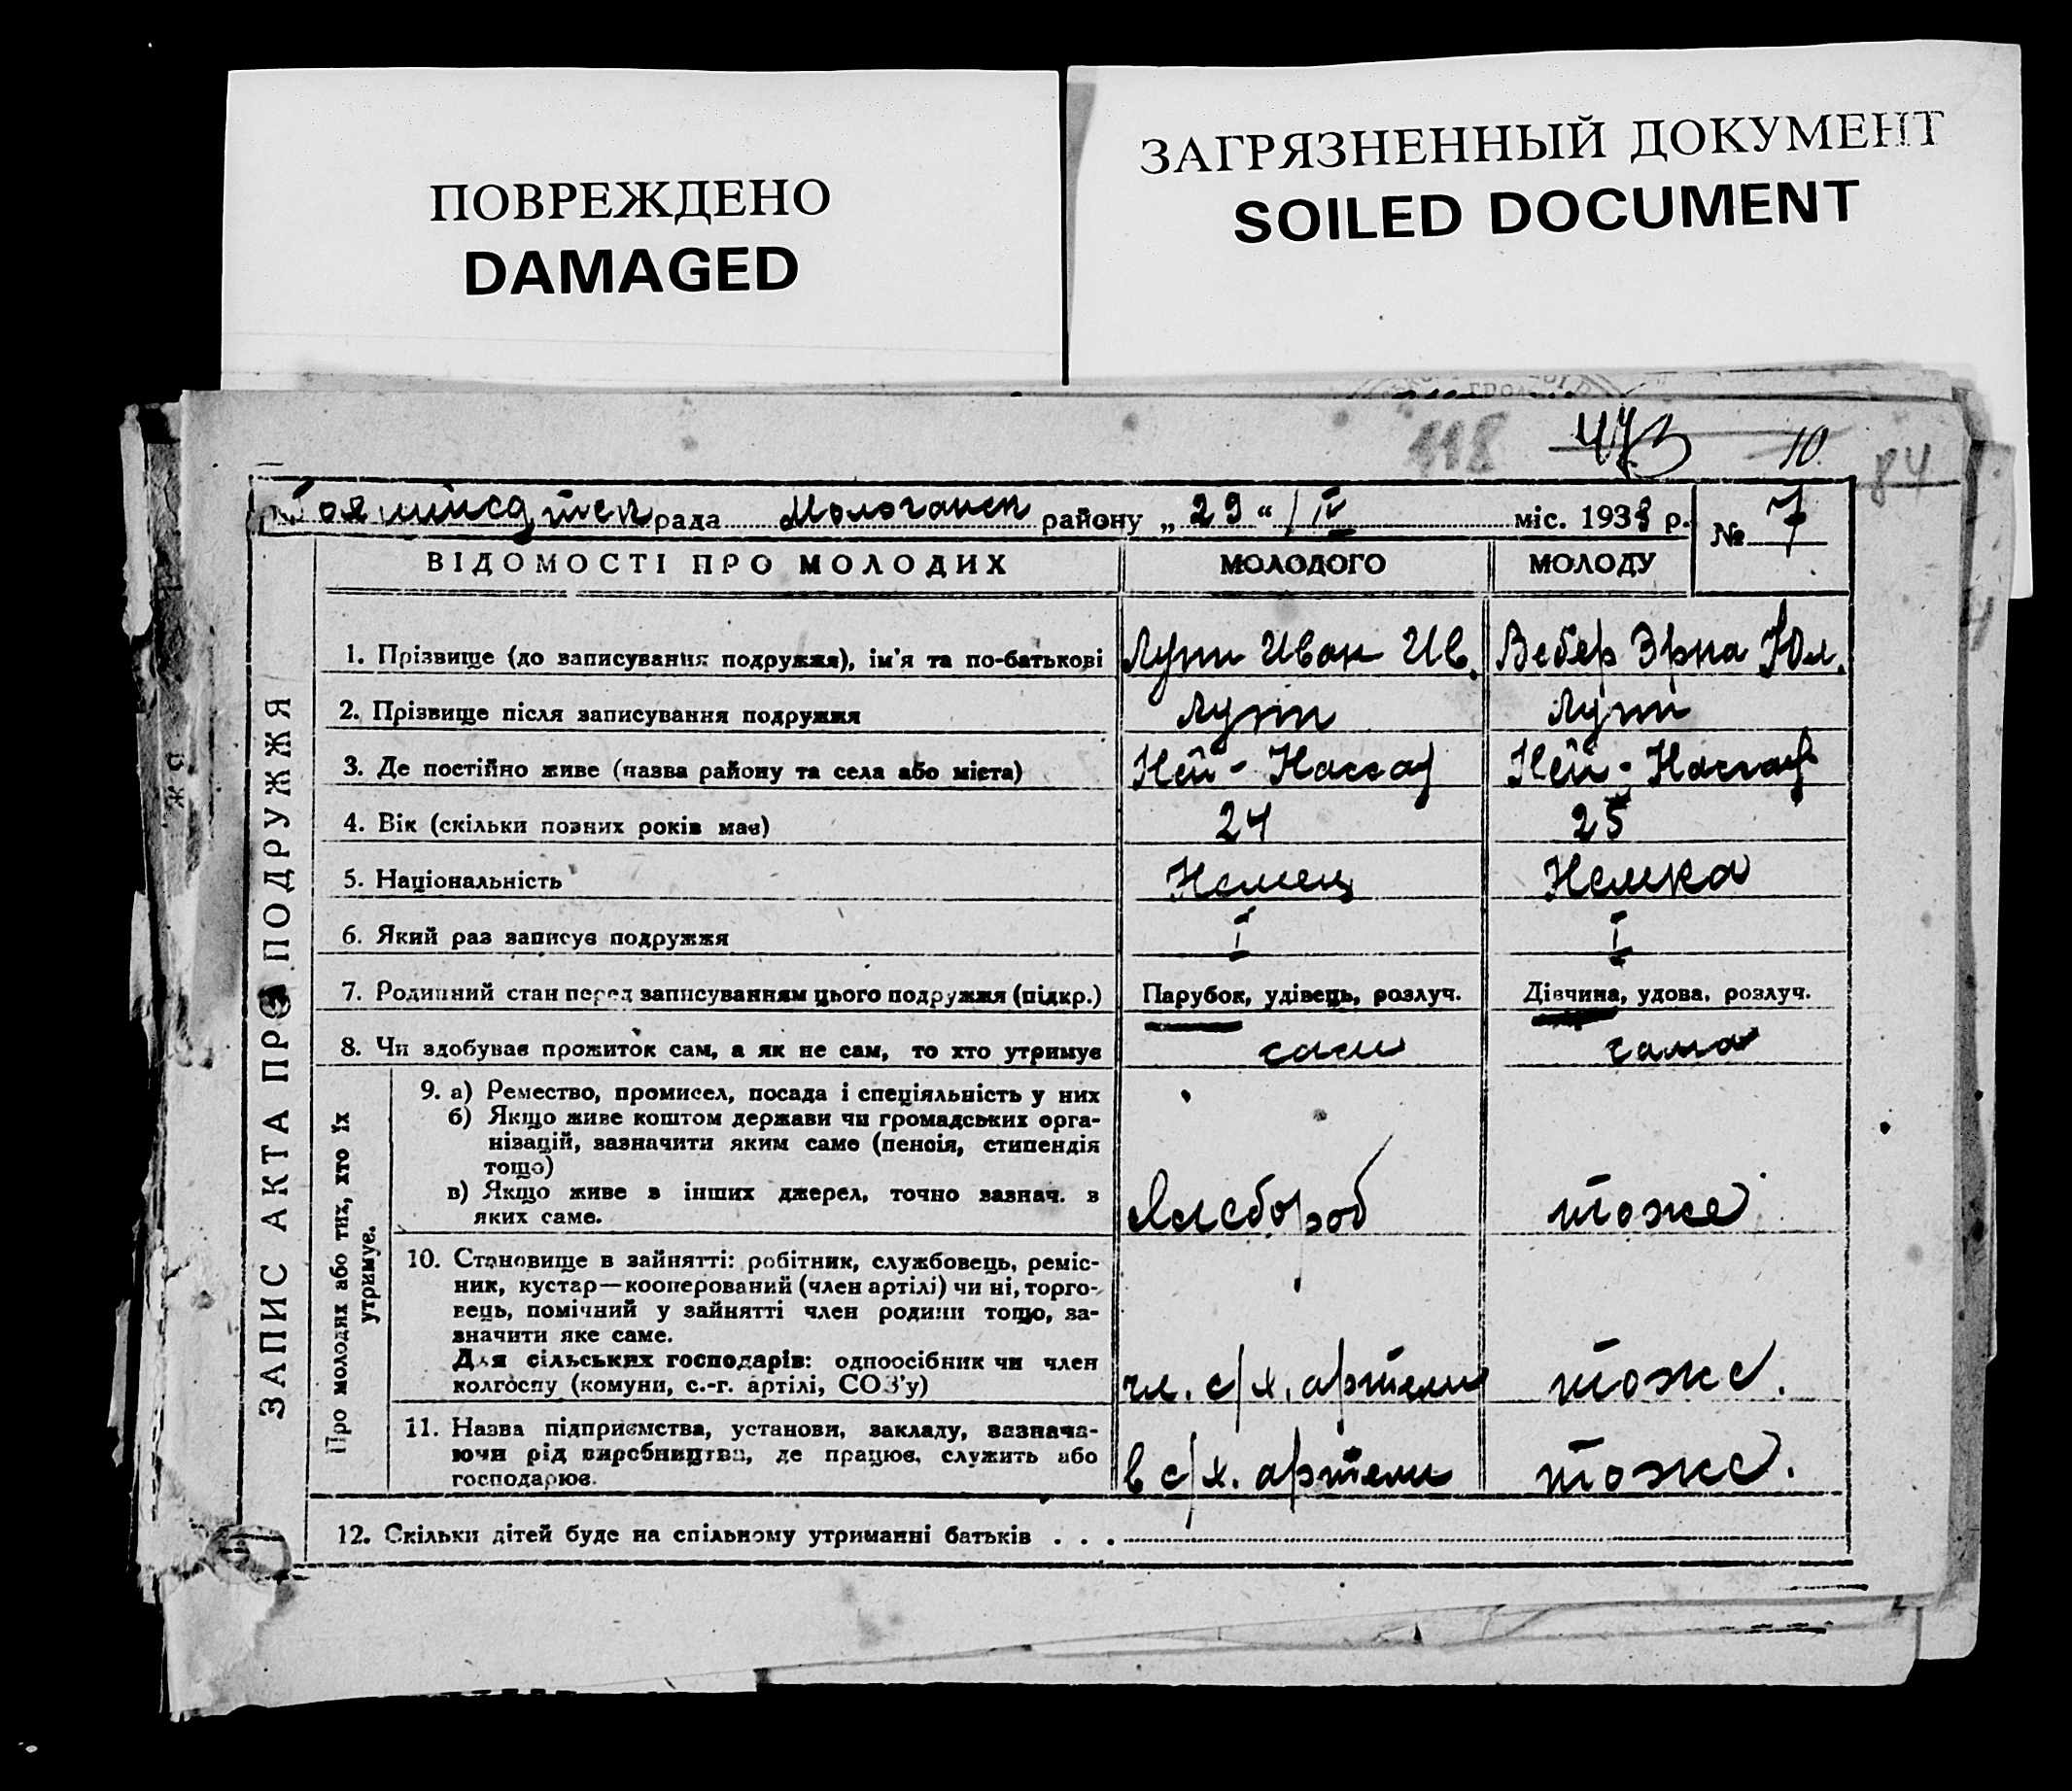 ПОВРЕЖДЕНО
DAMAGED
ЗАГРЯЗНЕННЫЙ ДОКУМЕНТ
SOILED DOCUMENT
118 473 10. 84
рада Молочанск району „ 29 “ / IV міс. 1938 р. № 7
ВІДОМОСТІ ПРО МОЛОДИХ МОЛОДОГО МОЛОДУ
ЗАПИС АКТА ПРО ПОДРУЖЖЯ
1. Прізвище (до записування подружжя), ім'я та по-батькові Лутт Иван Ив. Вебер Эрна Юл.
2. Прізвище після записування подружжя Лутт Лутт
3. Де постійно живе (назва району та села або міста) Ней - Нассау Ней - Нассау
4. Вік (скільки повних років має) 24 25
5. Національність Немец Немка
6. Який раз записує подружжя I I
7. Родинний стан перед записуванням цього подружжя (підкр.) Парубок, удівець, розлуч. Дівчина, удова, розлуч.
8. Чи здобуває прожиток сам, а як не сам, то хто утримує сам сама
Про молодих або тих, хто їх
утримує.
9. а) Ремество, промисел, посада і спеціяльність у них
б) Якщо живе коштом держави чи громадських орга-
нізацій, зазначити яким саме (пенсія, стипендія
тощо)
в) Якщо живе з інших джерел, точно зазнач. з
яких саме. Хлебороб тоже
10. Становище в зайнятті: робітник, службовець, реміс-
ник, кустар—кооперований (член артілі) чи ні, торго-
вець, помічний у зайнятті член родини тощо, за-
значити яке саме.
Для сільських господарів: одноосібник чи член
колгоспу (комуни, с.-г. артілі, СОЗ'у) чл. с/х. артели тоже.
11. Назва підприємства, установи, закладу, зазнача-
ючи рід виробництва, де працює, служить або
господарює. в с/х. артели тоже.
12. Скільки дітей буде на спільному утриманні батьків . . .